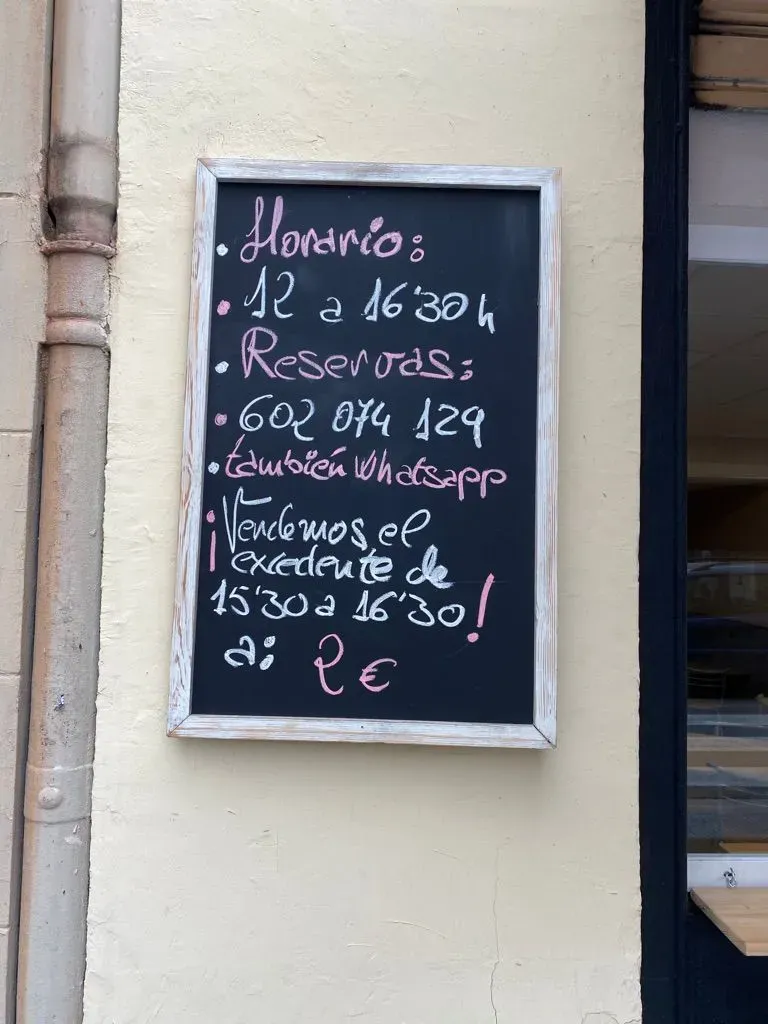 • Horario:
• 12 a 16'30 h
• Reservas:
• 602 074 129
• también Whatsapp
¡Vendemos el
excedente de
15'30 a 16'30!
a: 2 €